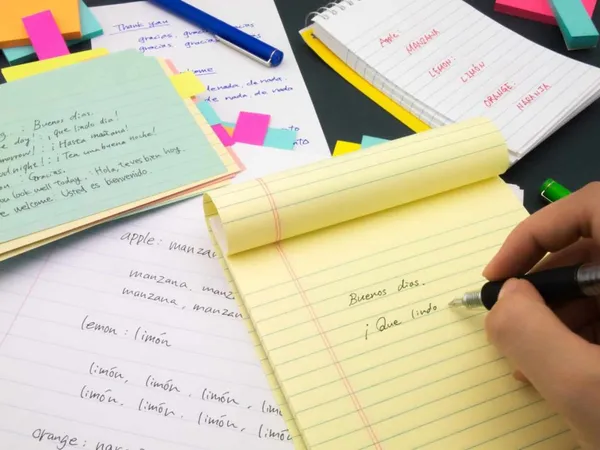 Thank you
gracias, gracias, gracias,
gracias, gracias
de nada, de nada.
de nada, de nada,
Apple MANZANA
LEMON LIMÓN
ORANGE NARANJA
Buenos dias.
day; ¡que lindo dia!
¡Hasta mañana!
night! ¡Ten una buena noche!
Gracias.
look well today. Hola, te ves bien hoy.
welcome. Usted es bienvenido.
apple: manzana
manzana. manzana
manzana, manzana
lemon: limón
limón, limón, limón, limón
limón, limón, limón, limón
orange:
Buenos dias.
¡Que lindo